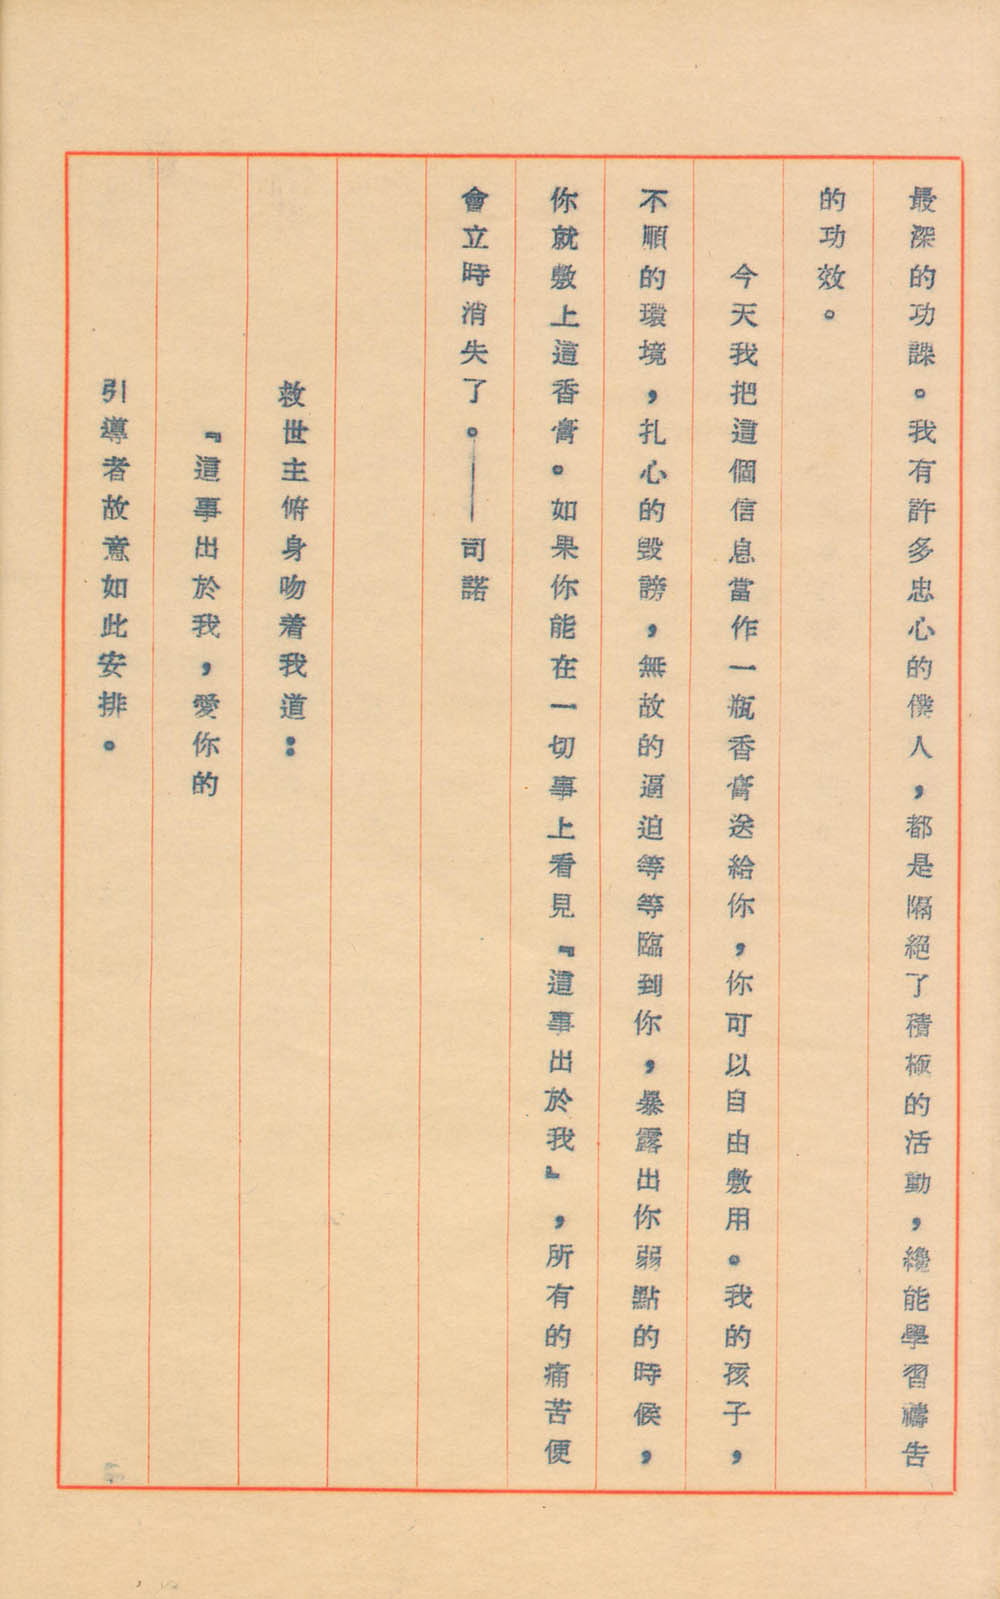 最深的功課。我有許多忠心的僕人，都是隔絕了積極的活動，纔能學習禱告
的功效。
今天我把這個信息當作一瓶香膏送給你，你可以自由敷用。我的孩子，
不順的環境，扎心的毀謗，無故的逼迫等等臨到你，暴露出你弱點的時候，
你就敷上這香膏。如果你能在一切事上看見『這事出於我』，所有的痛苦便
會立時消失了。——司諾
救世主俯身吻着我道：
『這事出於我，愛你的
引導者故意如此安排。